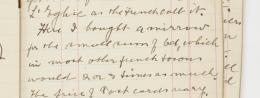 as the French call it.
Here I bought a mirror
for the small sum of 6d, which
in most other french towns
would 2 or 3 times as much.
The price of Post cards vary